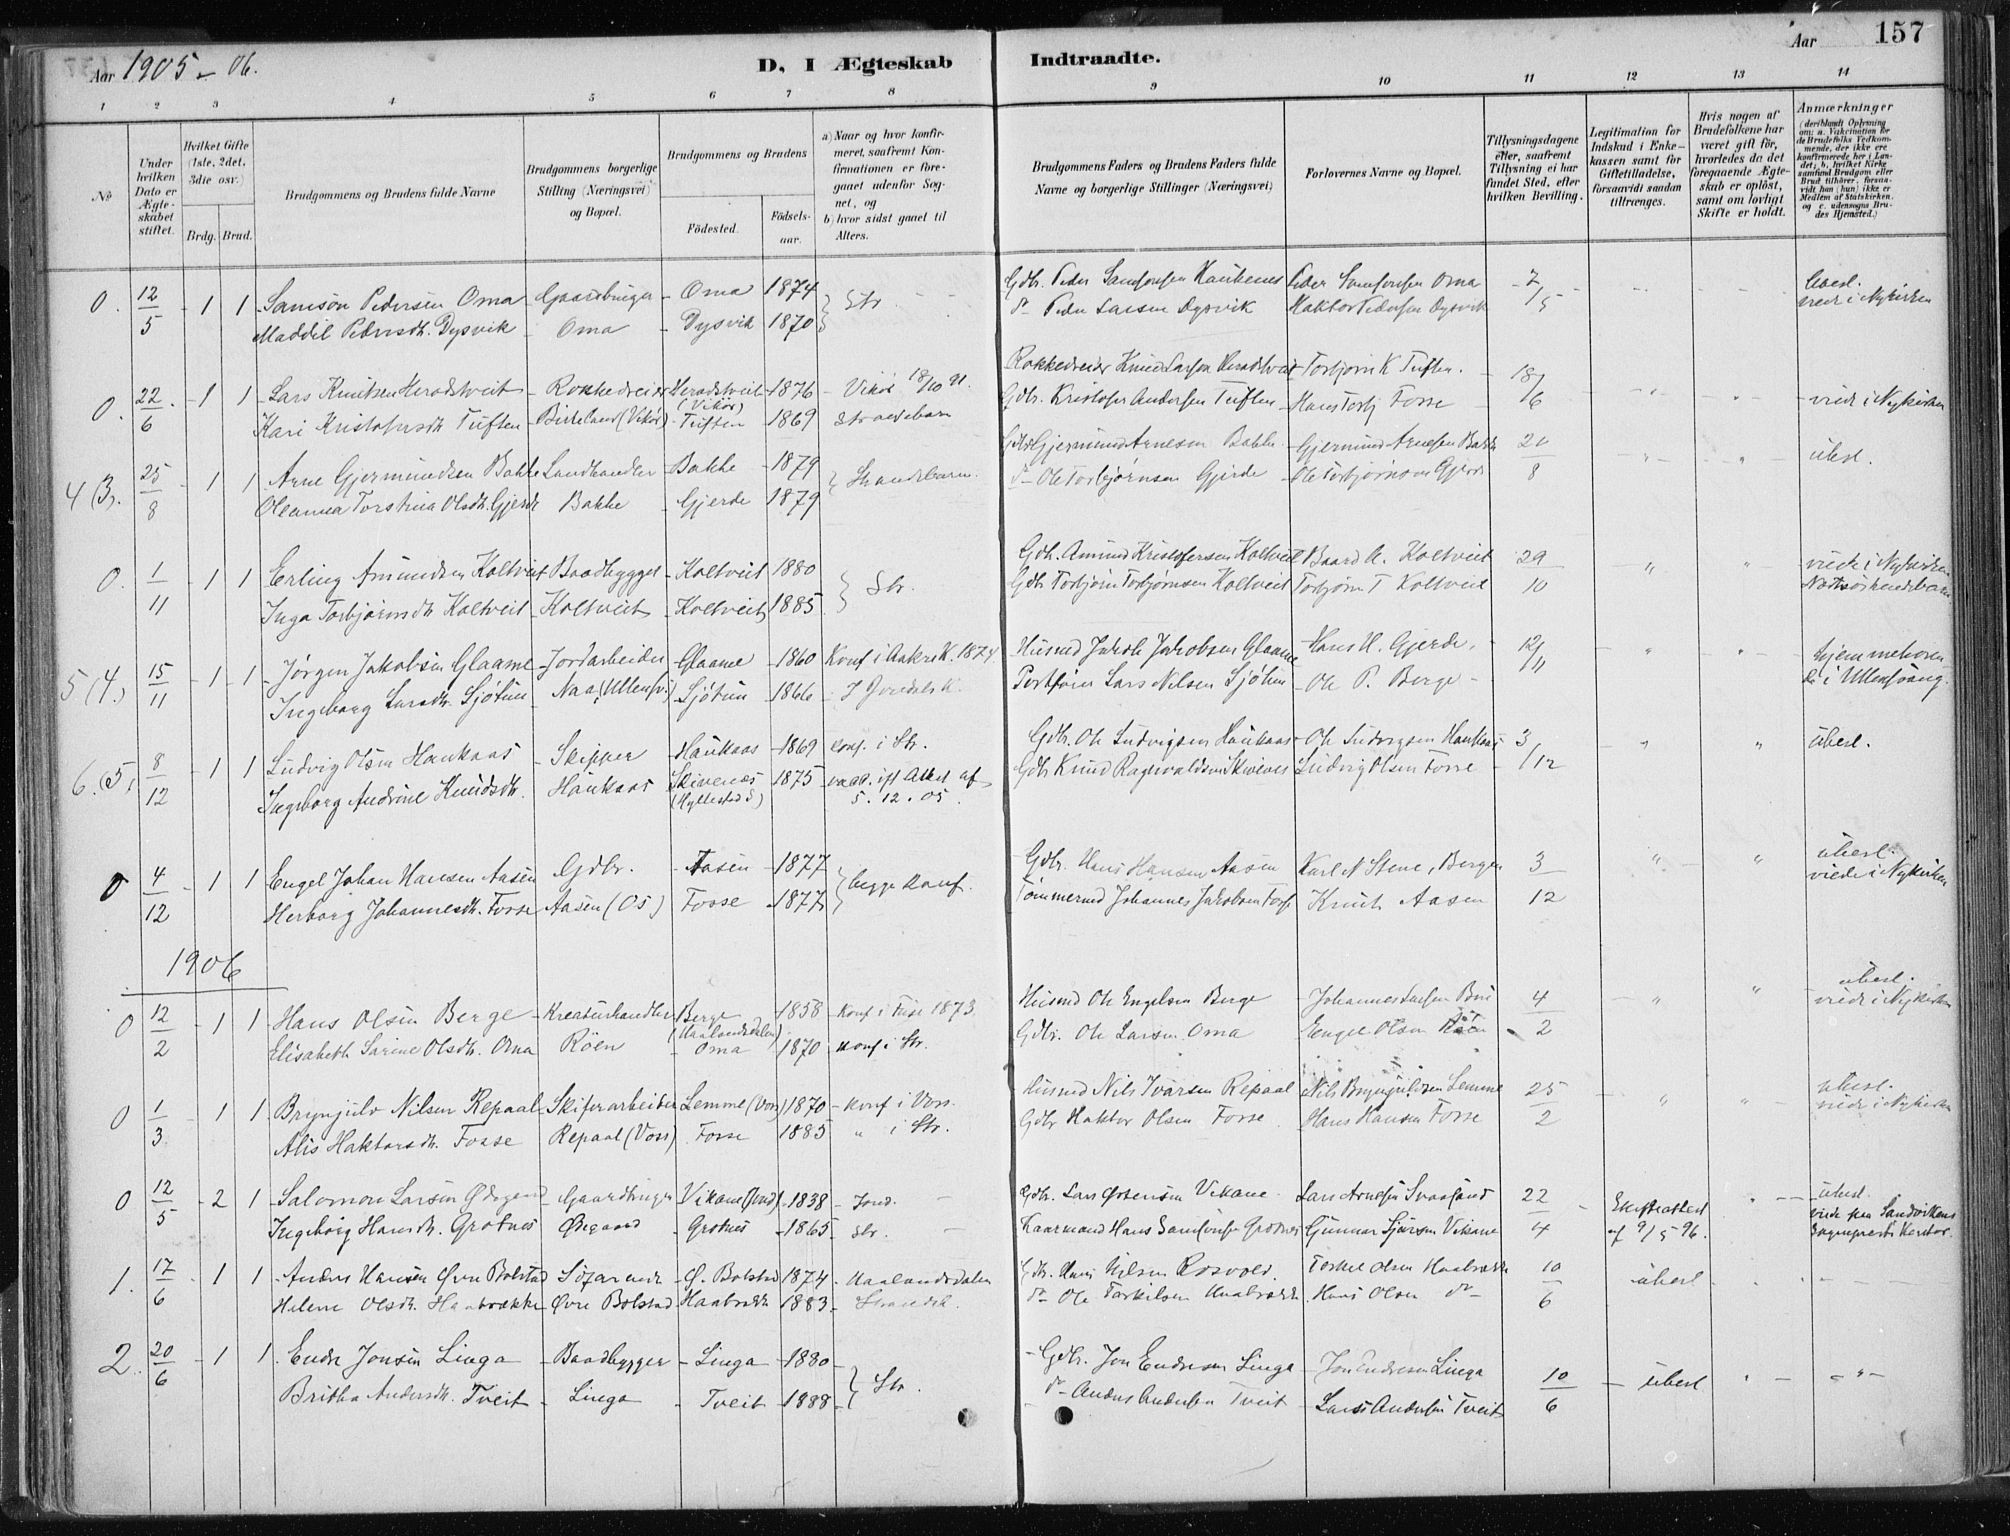 Aar 1905-06.
D. I Ægteskab Indtraadte.
Aar 157
1 2 3 4 5 6 7 8 9 10 11 12 13 14
No
Under hvilken Dato er Ægteskabet stiftet.
Hvilket Gifte (1ste, 2det, 3die osv.)
Brdg. Brud.
Brudgommens og Brudens fulde Navne
Brudgommens borgerlige Stilling (Næringsvei) og Bopæl.
Brudgommens og Brudens
Fødested.
Fødselsaar.
a) Naar og hvor konfirmeret, saafremt Konfirmationen er foregaaet udenfor Sognet, og
b) hvor sidst gaaet til Alters.
Brudgommens Faders og Brudens Faders fulde Navne og borgerlige Stillinger (Næringsvei)
Forlovernes Navne og Bopæl.
Tillysningsdagene eller, saafremt Tillysning ei har fundet Sted, efter hvilken Bevilling.
Legitimation for Indskud i Enkekassen samt for Giftetilladelse, forsaavidt saadan tiltrænges.
Hvis nogen af Brudefolkene har været gift før, hvorledes da det foregaaende Ægteskab er opløst, samt om lovligt Skifte er holdt.
Anmærkninger (deriblandt Oplysning om: a. Vakcination for de Brudefolks Vedkommende, der ikke ere konfirmerede her i Landet; b. hvilket Kirkesamfund Brudgom eller Brud tilhører, forsaavidt han (hun) ikke er Medlem af Statskirken, og c. udensogns Brudes Hjemsted.)
0. 12/5 - 1 1 Samson Pedersen Oma - Gaardbruger - Oma - 1874 } Str Gdbr. Peder Samsonsen Haukenes Peder Samsonsen Oma - 7/5 - ubesl.
Maddil Pedersdtr. Dysvik - Oma - Dysvik 1870 do Peder Larsen Dysvik Haktor Pedersen Dysvik viede i Nykirken
0. 22/6 - 1 1 Lars Knutsen Heradstveit - Rokkedreier Heradstveit (Vikør) 1876 - Vikør 18/10 91. Rokkedreier Knud Larsen Heradstveit Torbjørn K Tuften - 18/6 - viede i Nykirken
Kari Kristofersdtr Tuften - Birkeland (Vikør) - Tuften 1869 Strandebarm Gdbr. Kristofer Andersen Tuften - Hans Torbj Fosse
4 (3). 25/8 - 1 1 Arne Gjermundsen Bakke Landhandler - Bakke - 1879 } Strandebarm. Gdbr Gjermund Arnesen Bakke - Gjermund Arnesen Bakke 20/8 ubesl.
Oleanna Torstina Olsdtr. Gjerde Bakke - Gjerde 1879 do Ole Torbjørnsen Gjerde Ole Torbjørnsen Gjerde
0. 1/11 - 1 1 Erling Amundsen Koltveit Baadbygger - Koltveit 1880 } Str. Gdbr. Amund Kristofersen Koltveit Baard A. Koltveit 29/10 viede i Nykirken
Inga Torbjørnsdtr Koltveit - Koltveit - Koltveit 1885 Gdbr Torbjørn Torbjørnsen Koltveit Torbjørn T Koltveit Næstsøskendebarn
5 (4.) 15/11 - 1 1 Jørgen Jakobsen Glaame - Jordarbeider - Glaame - 1860 Konf i Aakre K. 1874 Husmd Jakob Jakobsen Glaame - Hans H. Gjerde. - 12/11 hjemmehørende
Ingeborg Larsdtr. Sjøtun - Naa (Ullensv.) - Sjøtun - 1866 - i Jondals K. Lars Nilsen Sjøtun - Ole P. Berge - i Ullensvang.
6. (5) 8/12 - 1 1 Ludvig Olsen Haukaas - Skipper - Haukaas - 1869 konf. i Str. Gdbr. Ole Ludvigsen Haukaas - Ole Ludvigsen Haukaas 3/12 ubesl.
Ingeborg Andrine Knudsdtr. - Haukaas Skivenes (Hyllestad S) 1875 vacc. ifl Attest af 5.12.05. Gdbr Knud Ragnvaldsen Skivenes Ludvig Olsen Fosse
0 4/12 - 1 1 Engel Johan Hansen Aasen Gdbr. - Aasen - 1877 } begge konf. Gdbr. Hans Hansen Aasen Karl N Stene, Bergen 3/12 ubesl.
Herborg Johannesdtr. Fosse Aasen (Os) Fosse - 1877 Tømmermd Johannes Jakobsen Fosse Knut Aasen viede i Nykirken
1906
0 12/2 - 1 1 - Hans Olsen Berge - Kreaturhandler Berge (Haalandsdalen) 1858 - konf i Fuse 1873 Husmd Ole Engelsen Berge - Johannes Larsen 4/2 ubesl.
Elisabeth Sarine Olsdtr. Oma Røen - Oma 1870 konf i Str. Gdbr. Ole Larsen Oma Engel Olsen viede i Nykirken
0 1/3 - 1 1 Brynjulv Nilsen Repaal - Skiferarbeider Lemme (Voss) 1870 - konf i Voss. Husmd Nils Ivarsen Repaal Nils Brynjulvsen Lemme 25/2 ubesl.
Alis Haktorsdtr. Fosse Repaal (Voss) - Fosse 1885 " i Str. Gdbr Haktor Olsen Fosse Hans Hansen Fosse viede i Nykirken
0 12/5 - 2 1 - Salomon Larsen Ødegaard - Gaardbruger Vikane (Jond) 1838 - Jond. Gdbr. Lars Østensen Vikane. Lars Arnesen 22/4 Skifteattest af 9/5 96. ubesl.
Ingeborg Hansdtr. Grotnes Ødegaard - Grotnes - 1865 - Str. Kaarmand Hans Samsonsen Grotnes Gunnar Sjursen Vikane viede paa Sandvikens Sognepræsts Kontor.
1. 17/6 - 1 1 - Anders Hansen Øvre Bolstad Søfarende - Ø. Bolstad 1874 - Haalandsdalen Gdbr. Hans Nilsen Rosvold. Torkel Olsen Haabrekke 10/6 ubesl
Helene Olsdtr. Haabrække - Øvre Bolstad Haabrekke 1883 - Strandeb. do Ole Torkilsen Haabrekke Hans Olsen do
2. 20/6 - 1 1. Endre Jonsen Linga - Baadbygger - Linga - 1880 } Str. - Gdbr. Jon Endresen Linga - Jon Endresen Linga 10/6 - ubesl " - - " -
Britha Andersdtr. Tveit - Linga - Tveit - 1888 do Anders Andersen Tveit - Lars Andersen Tveit